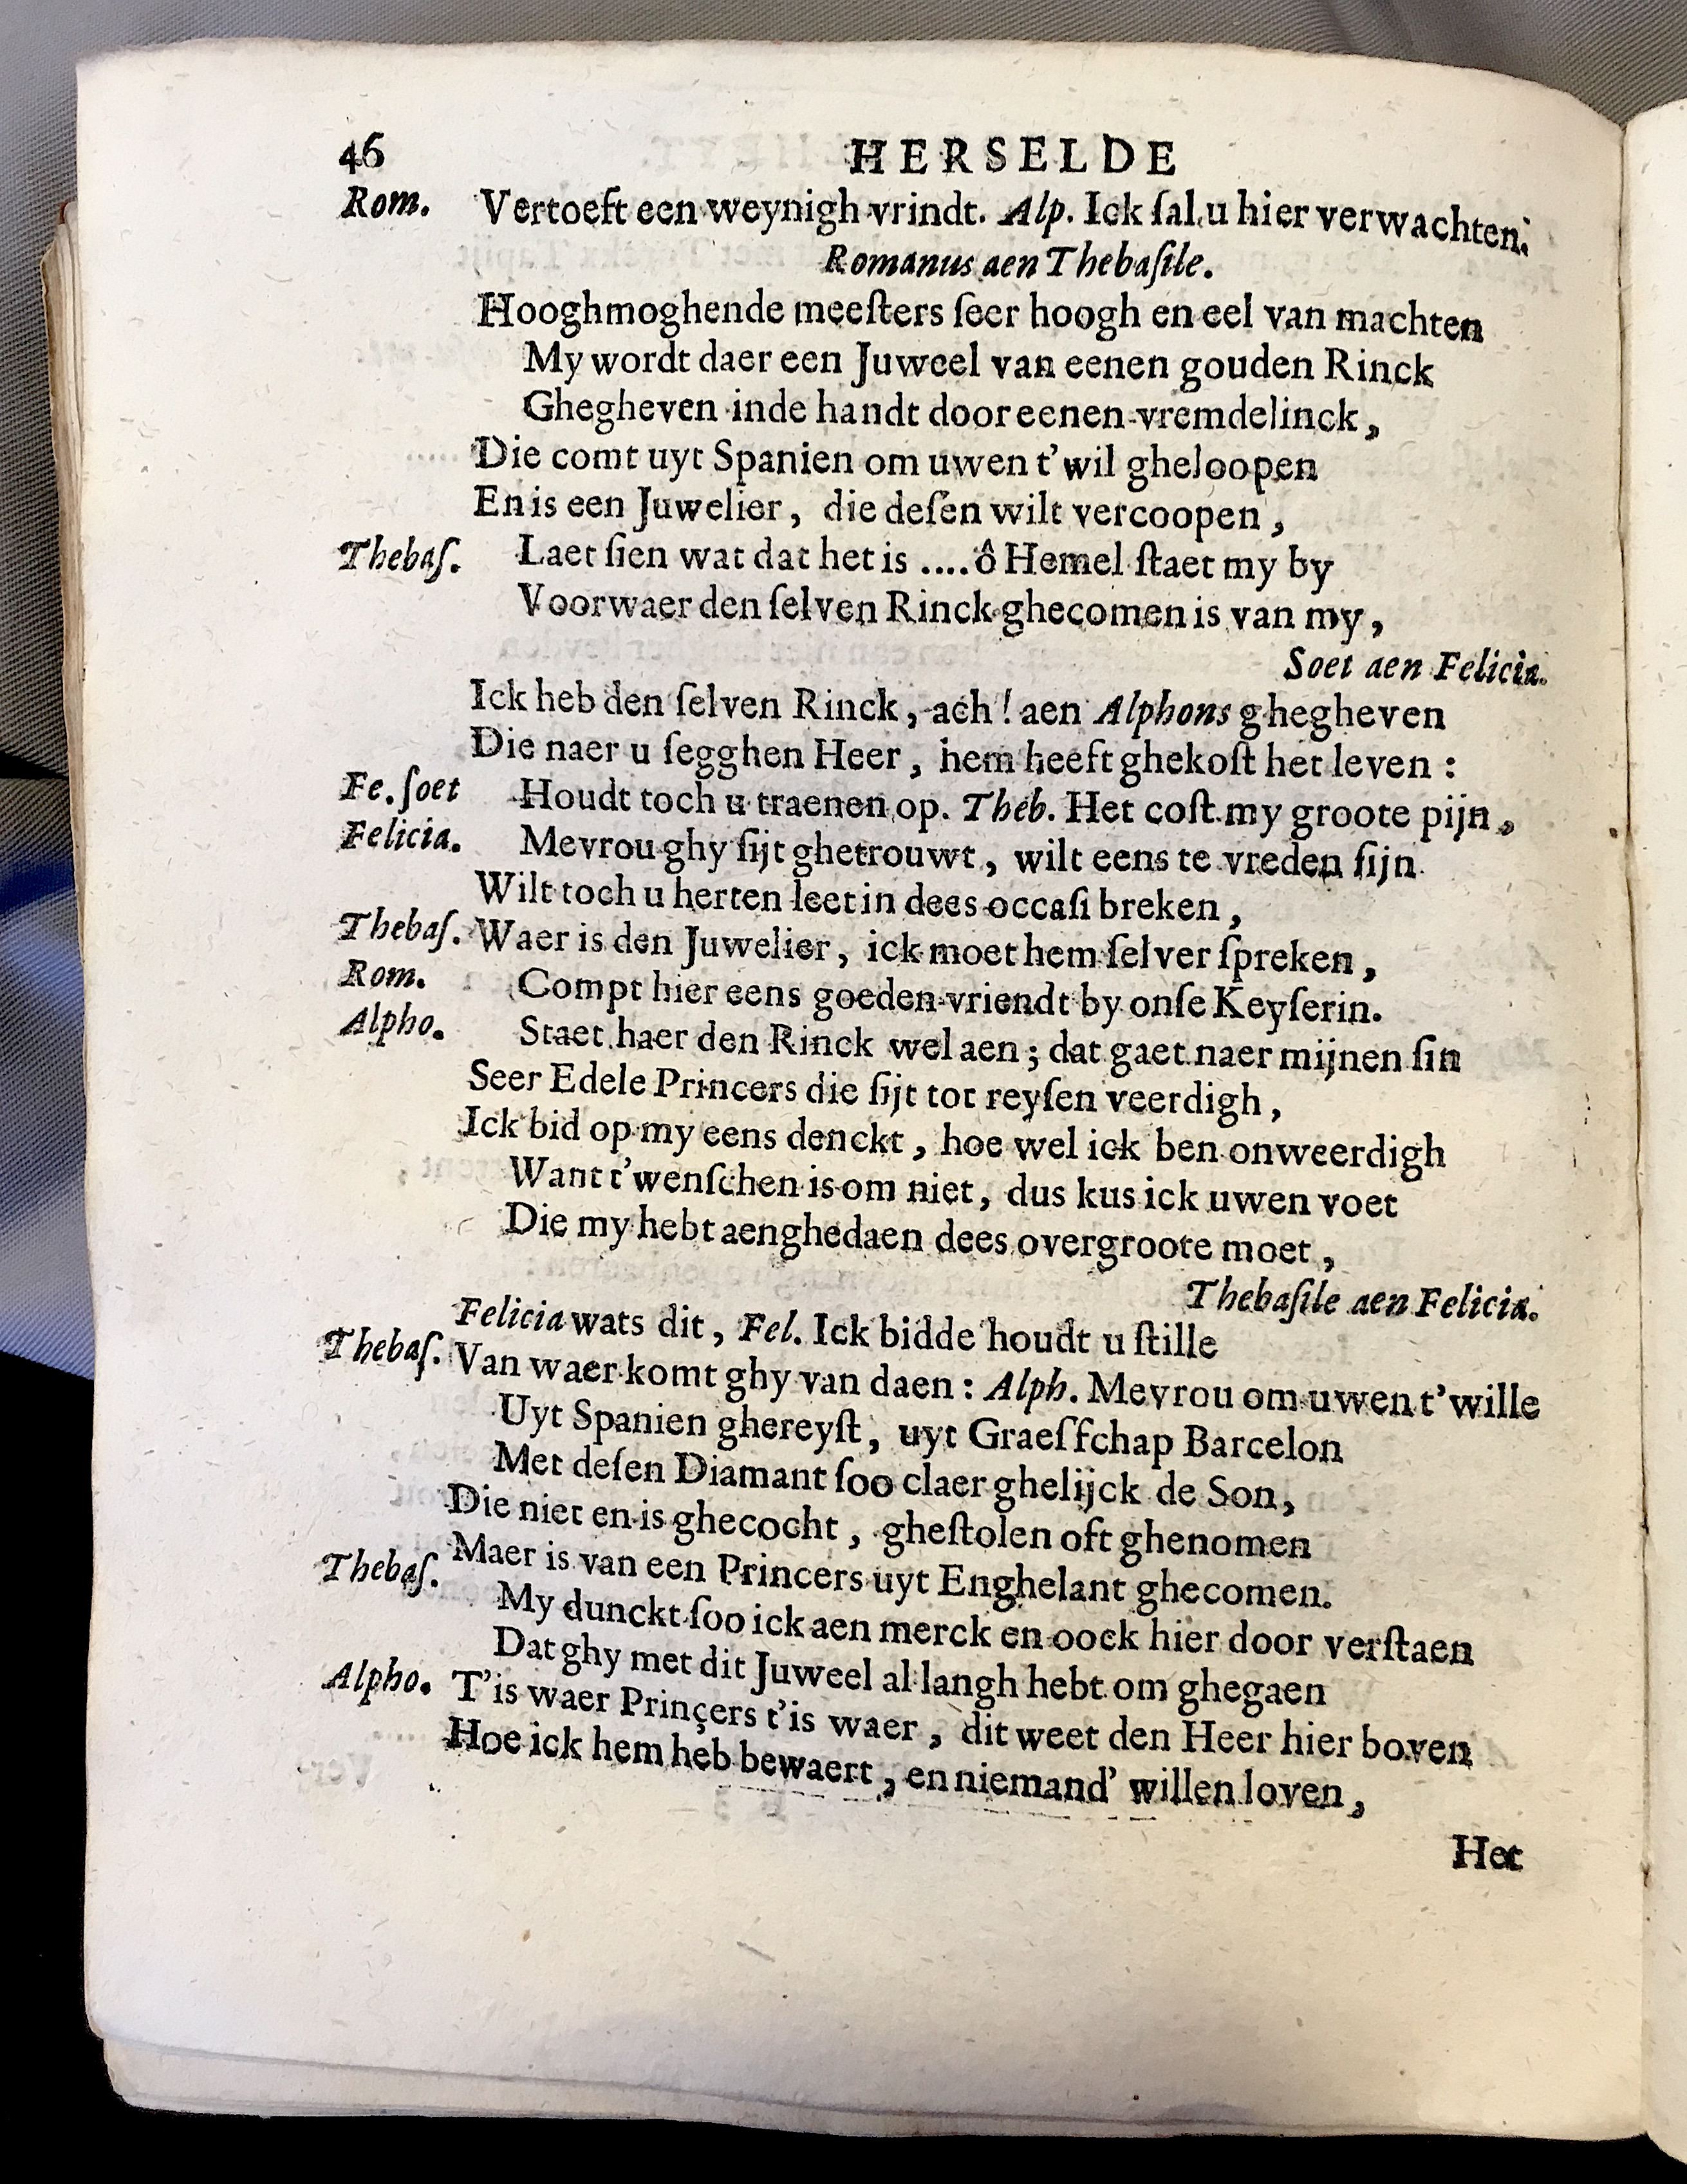 46 HERSELDE
Rom. Vertoeft een weynigh vrindt. Alp. Ick ſal u hier verwachten.
Romanus aen Thebaſile.
Hooghmoghende meeſters ſeer hoogh en eel van machten
My wordt daer een Juweel van eenen gouden Rinck
Ghegheven inde handt door eenen vremdelinck,
Die comt uyt Spanien om uwen t'wil gheloopen
En is een Juwelier, die deſen wilt vercoopen,
Thebaſ. Laet ſien wat dat het is .... ô Hemel ſtaet my by
Voorwaer den ſelven Rinck ghecomen is van my,
Soet aen Felicia.
Ick heb den ſelven Rinck, ach! aen Alphons ghegheven
Die naer u ſegghen Heer, hem heeft ghekoſt het leven:
Fe. ſoet Houdt toch u traenen op. Theb. Het coſt my groote pijn,
Felicia. Mevrou ghy ſijt ghetrouwt, wilt eens te vreden ſijn
Wilt toch u herten leet in dees occaſi breken,
Thebaſ. Waer is den Juwelier, ick moet hem ſelver ſpreken,
Rom. Compt hier eens goeden vriendt by onſe Keyſerin.
Alpho. Staet haer den Rinck wel aen; dat gaet naer mijnen ſin
Seer Edele Princers die ſijt tot reyſen veerdigh,
Ick bid op my eens denckt, hoe wel ick ben onweerdigh
Want t'wenſchen is om niet, dus kus ick uwen voet
Die my hebt aenghedaen dees overgroote moet,
Thebaſile aen Felicia.
Felicia wats dit, Fel. Ick bidde houdt u ſtille
Thebaſ. Van waer komt ghy van daen: Alph. Mevrou om uwen t'wille
Uyt Spanien ghereyſt, uyt Graefſchap Barcelon
Met deſen Diamant ſoo claer ghelijck de Son,
Die niet en is ghecocht, gheſtolen oft ghenomen
Maer is van een Princers uyt Enghelant ghecomen.
Thebaſ. My dunckt ſoo ick aen merck en oock hier door verſtaen
Dat ghy met dit Juweel al langh hebt om ghegaen
Alpho. T'is waer Prinçers t'is waer, dit weet den Heer hier boven
Hoe ick hem heb bewaert, en niemand' willen loven,
Het